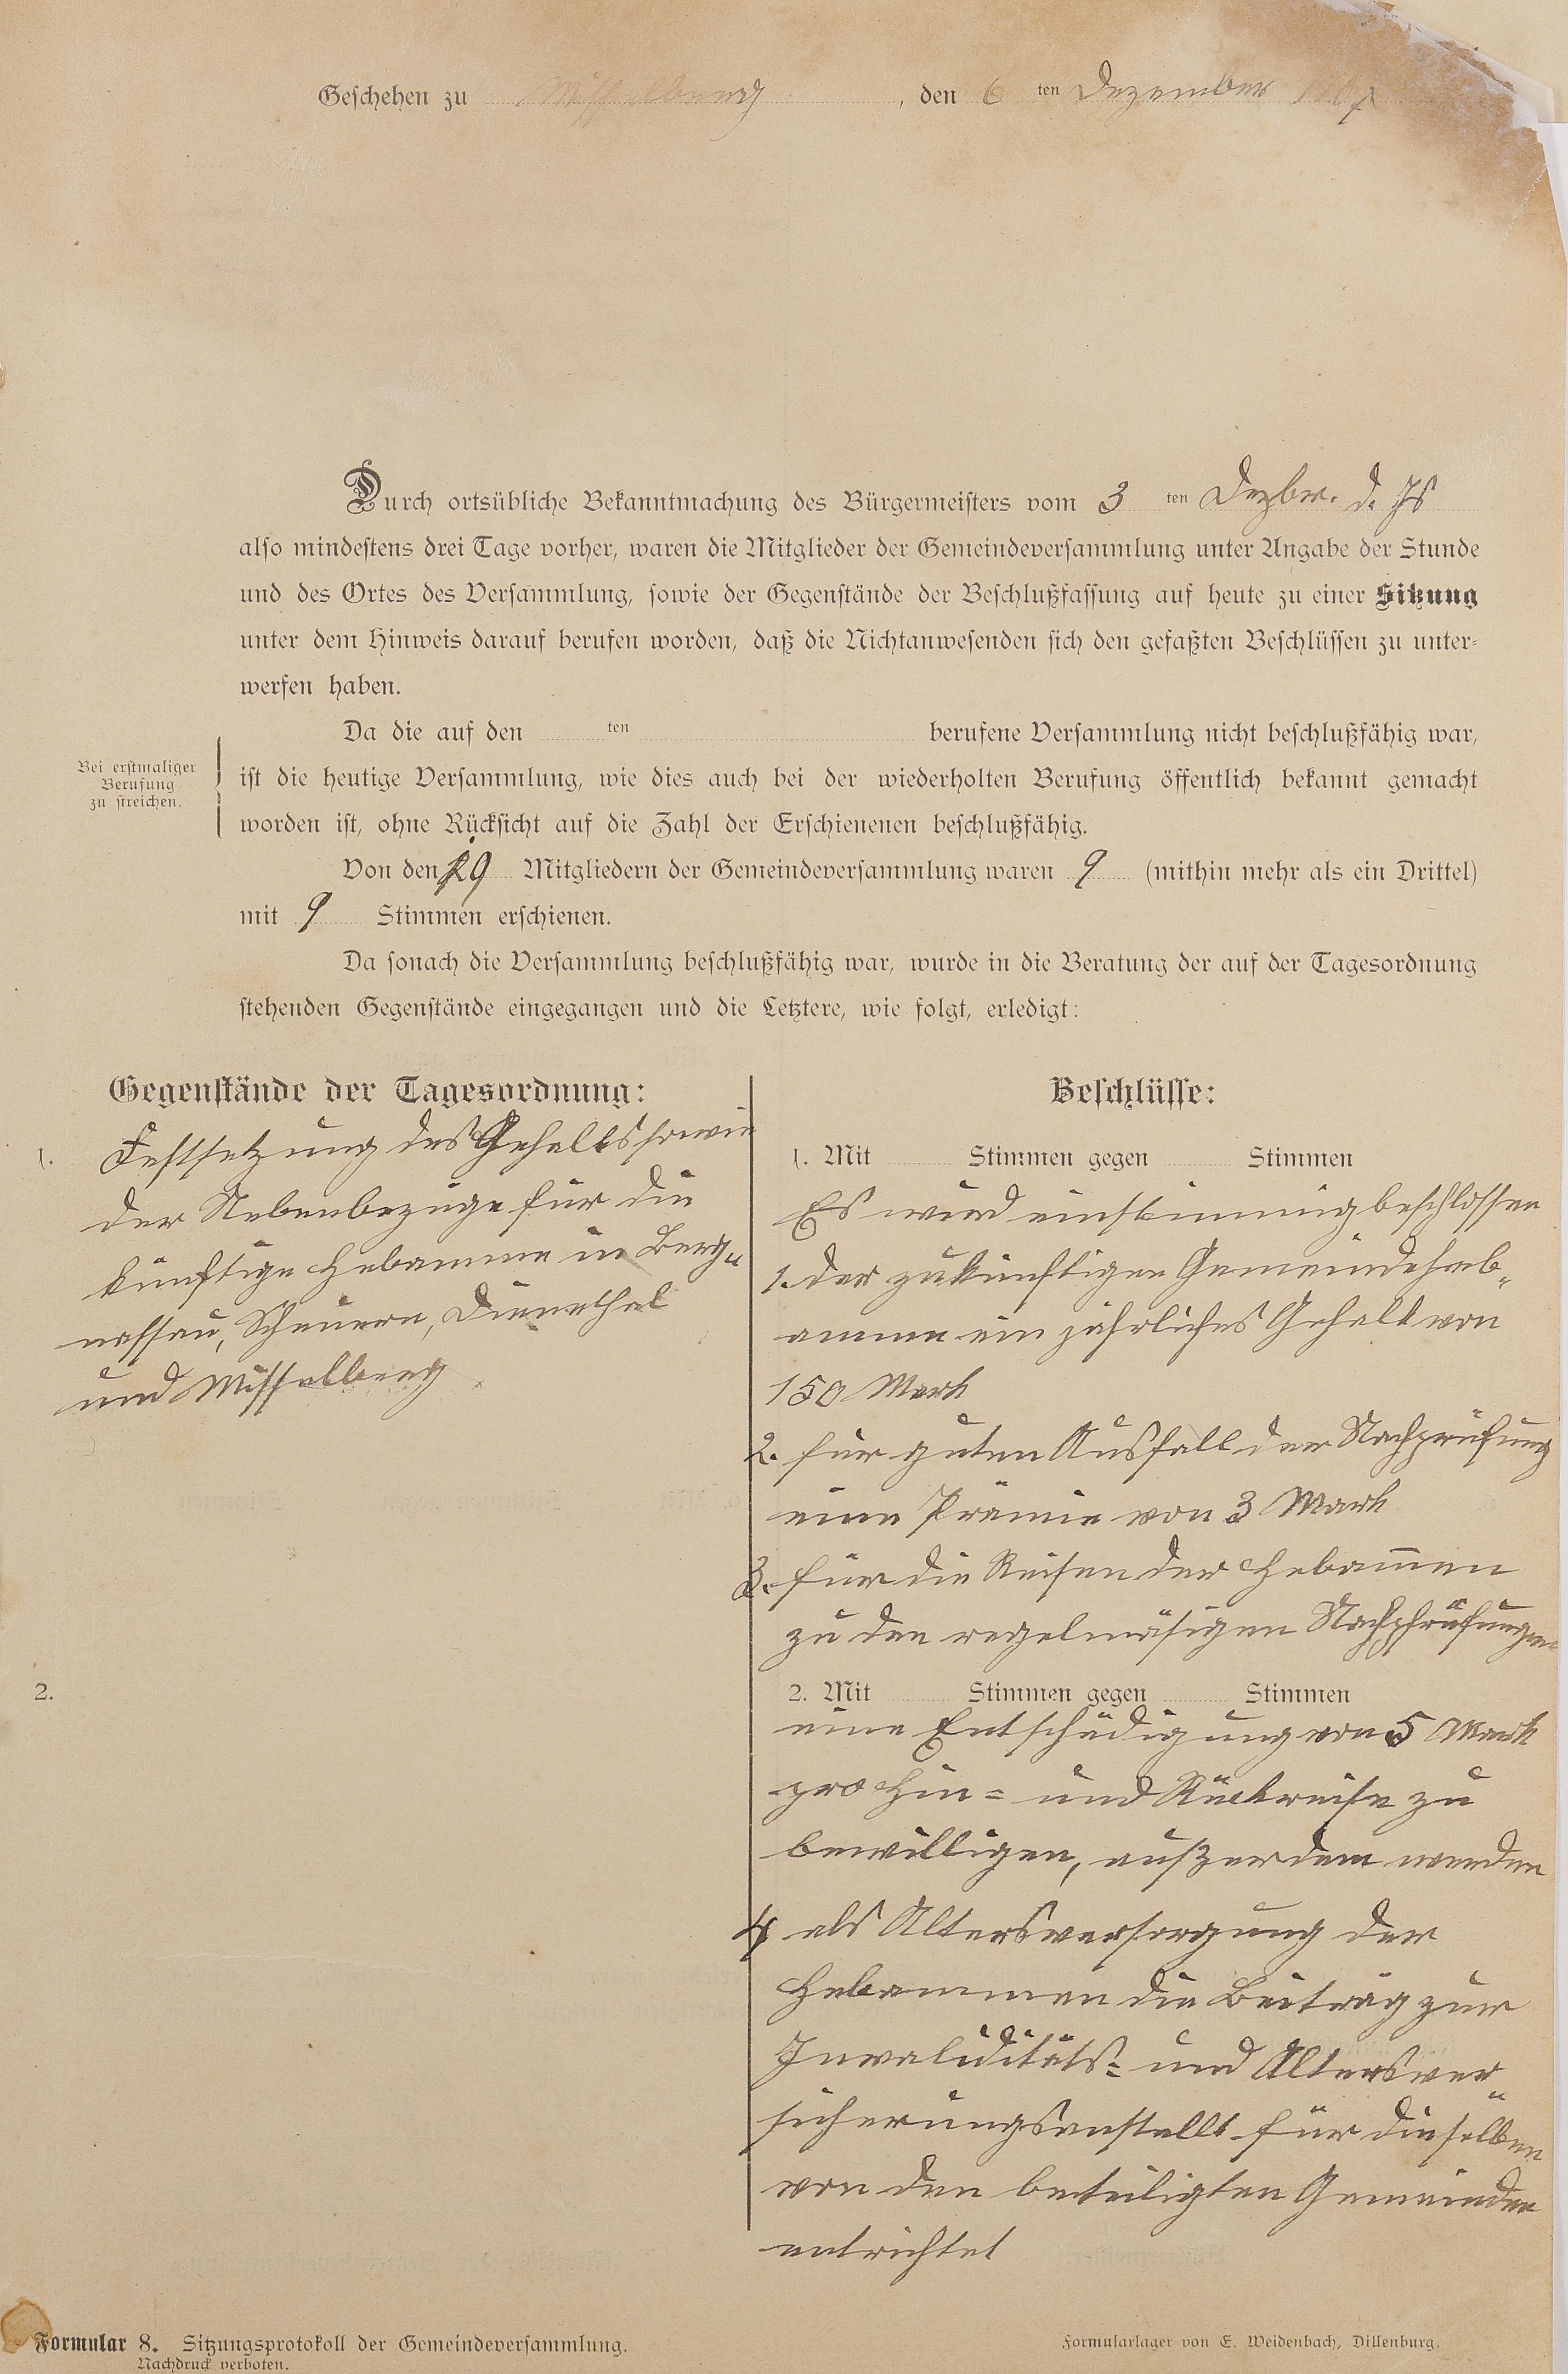 Geschehen zu Misselberg, den 6 ten Dezember
Durch ortsübliche Bekanntmachung des Bürgermeisters vom 3 ten Dezbr. d. Js
also mindestens drei Tage vorher, waren die Mitglieder der Gemeindeversammlung unter Angabe der Stunde
und des Ortes des Versammlung, sowie der Gegenstände der Beschlußfassung auf heute zu einer Sitzung
unter dem Hinweis darauf berufen worden, daß die Nichtanwesenden sich den gefaßten Beschlüssen zu unter-
werfen haben.
Da die auf den ten berufene Versammlung nicht beschlußfähig war,
Bei erstmaliger
Berufung
zu streichen.
ist die heutige Versammlung, wie dies auch bei der wiederholten Berufung öffentlich bekannt gemacht
worden ist, ohne Rücksicht auf die Zahl der Erschienenen beschlußfähig.
Von den 19 Mitgliedern der Gemeindeversammlung waren 9 (mithin mehr als ein Drittel)
mit 9 Stimmen erschienen.
Da sonach die Versammlung beschlußfähig war, wurde in die Beratung der auf der Tagesordnung
stehenden Gegenstände eingegangen und die Letztere, wie folgt, erledigt:
Gegenstände der Tagesordnung:
1. Festsetzung des Gehalts sowie
der Nebenbezüge für die
künftige Hebamme in Berg-
nassau, Scheuern, Dienethal
und Misselberg
2.
Beschlüsse:
1. Mit Stimmen gegen Stimmen
Es wird einstimmig beschlossen
1. der zukünftigen Gemeindeheb-
amme ein jährliches Gehalt von
150 Mark
2. für guten Ausfall der Nachprüfung
eine Prämie von 3 Mark
3. für die Reisen der Hebam̅en
zu den regelmäsigen Nachprüfungen
2. Mit Stimmen gegen Stimmen
eine Entschädigung von 5 Mark
pro Hin- und Rückreise zu
bewilligen, außerdem werden
4 als Altersversorgung der
Hebammen die Beiträg zur
Invaliditäts- und Altersver-
sicherungsanstallt für dieselben
von den beteiligten Gemeinden
entrichtet
Formular 8. Sitzungsprotokoll der Gemeindeversammlung.
Nachdruck verboten.
Formularlager von E. Weidenbach, Dillenburg.